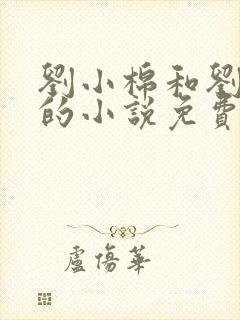 劉小棉和劉
的小說免費
盧傷華